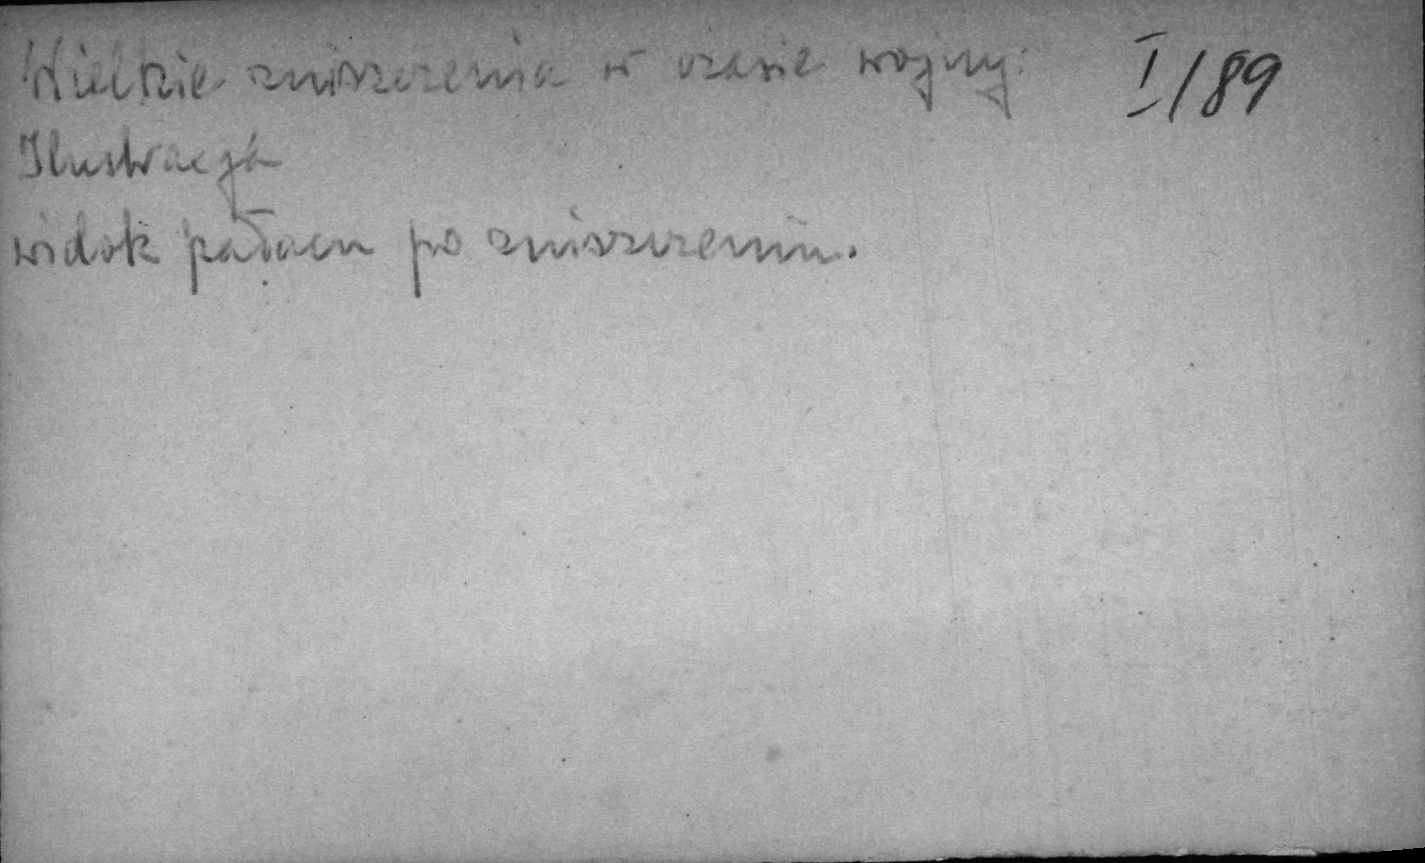 Wielkie zniszczenia w czasie wojny. I/89
Ilustracja
widok pałacu po zniszczeniu.